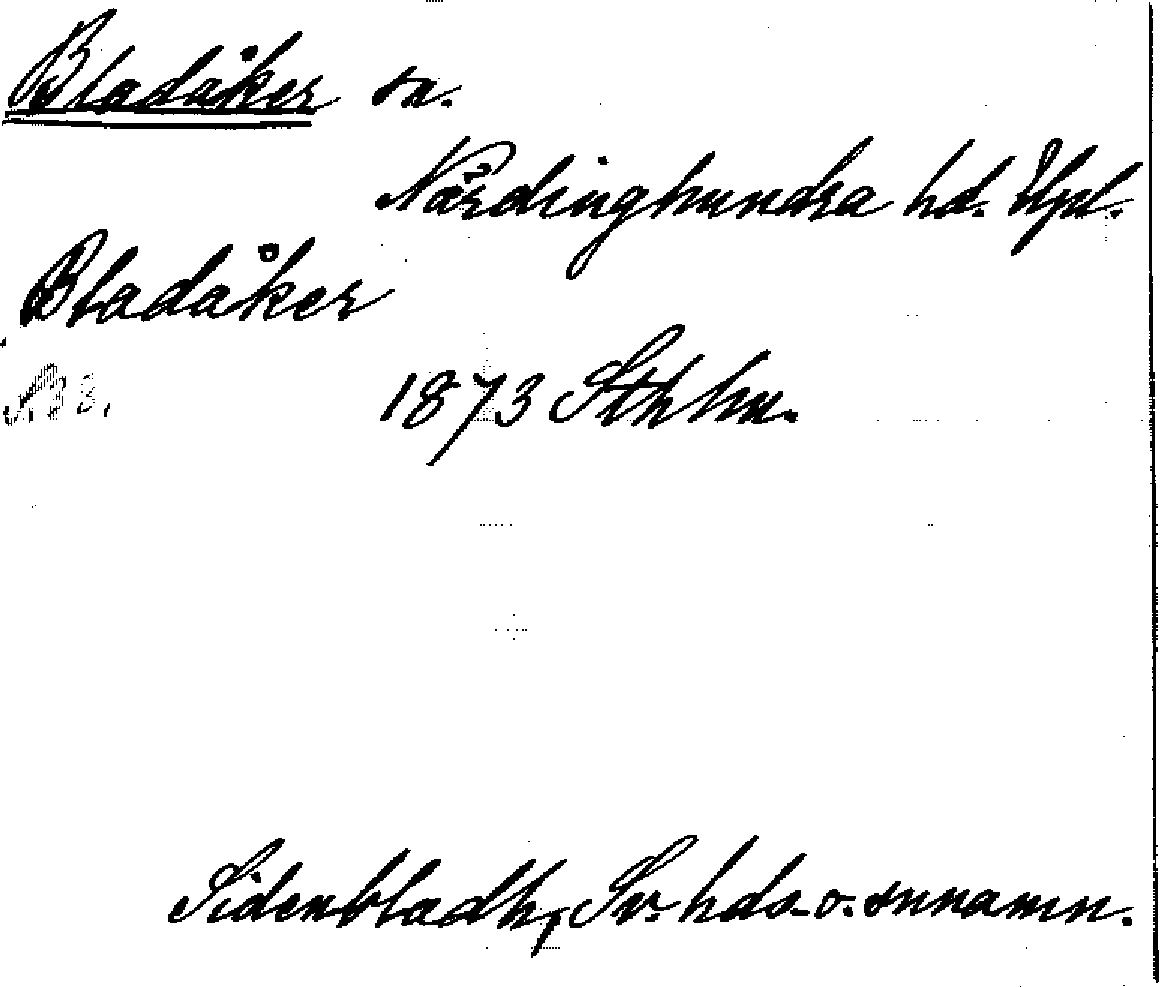 Bladåker sn.
Närdinghundra hd. Upl.
Bladåker
1873 Sthhm.
Sidenbladh, Sv. hds- o. snnamn.